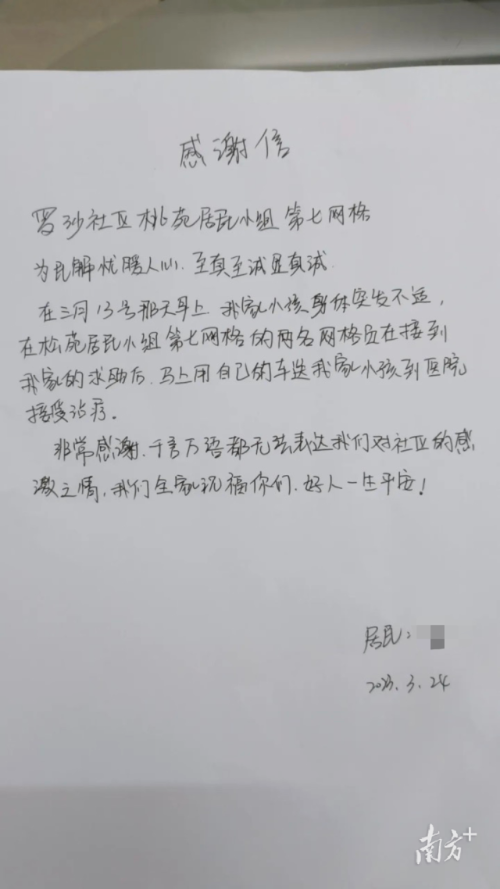 感谢信
罗沙社区桃苑居民小组第七网格
为民解忧暖人心.至真至诚显真诚.
在三月13号那天早上 我家小孩身体突发不适,
在桃苑居民小组第七网格的两名网格员在接到
我家的求助后.马上用自己的车送我家小孩到医院
接受治疗。
非常感谢.千言万语都无法表达我们对社区的感
激之情,我们全家祝福你们.好人一生平安!
居民:
2023.3.24
南方+